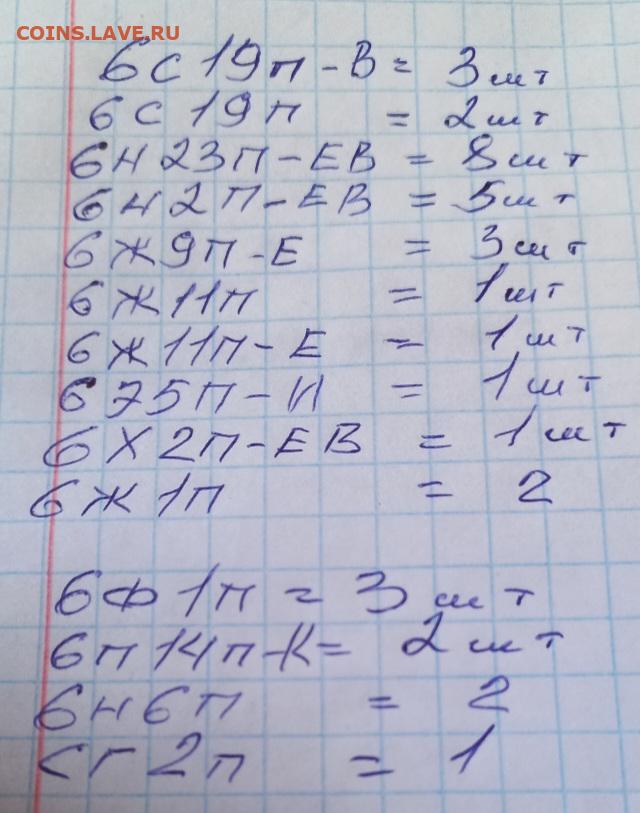 COINS.LAVE.RU
6С19П-В = 3шт
6С19П = 2шт
6Н23П-ЕВ = 8шт
6Н2П-ЕВ = 5шт
6Ж9П-Е = 3шт
6Ж11П = 1шт
6Ж11П-Е = 1шт
6Э5П-И = 1шт
6Х2П-ЕВ = 1шт
6Ж1П = 2
6Ф1П = 3шт
6П14П-К = 2шт
6Н6П = 2
СГ2П = 1